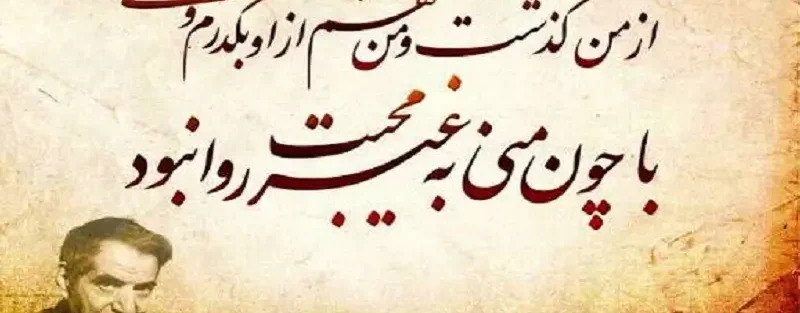 از من گذشت و من هم از او بگذرم ولی
با چون منی به غیر محبت روا نبود